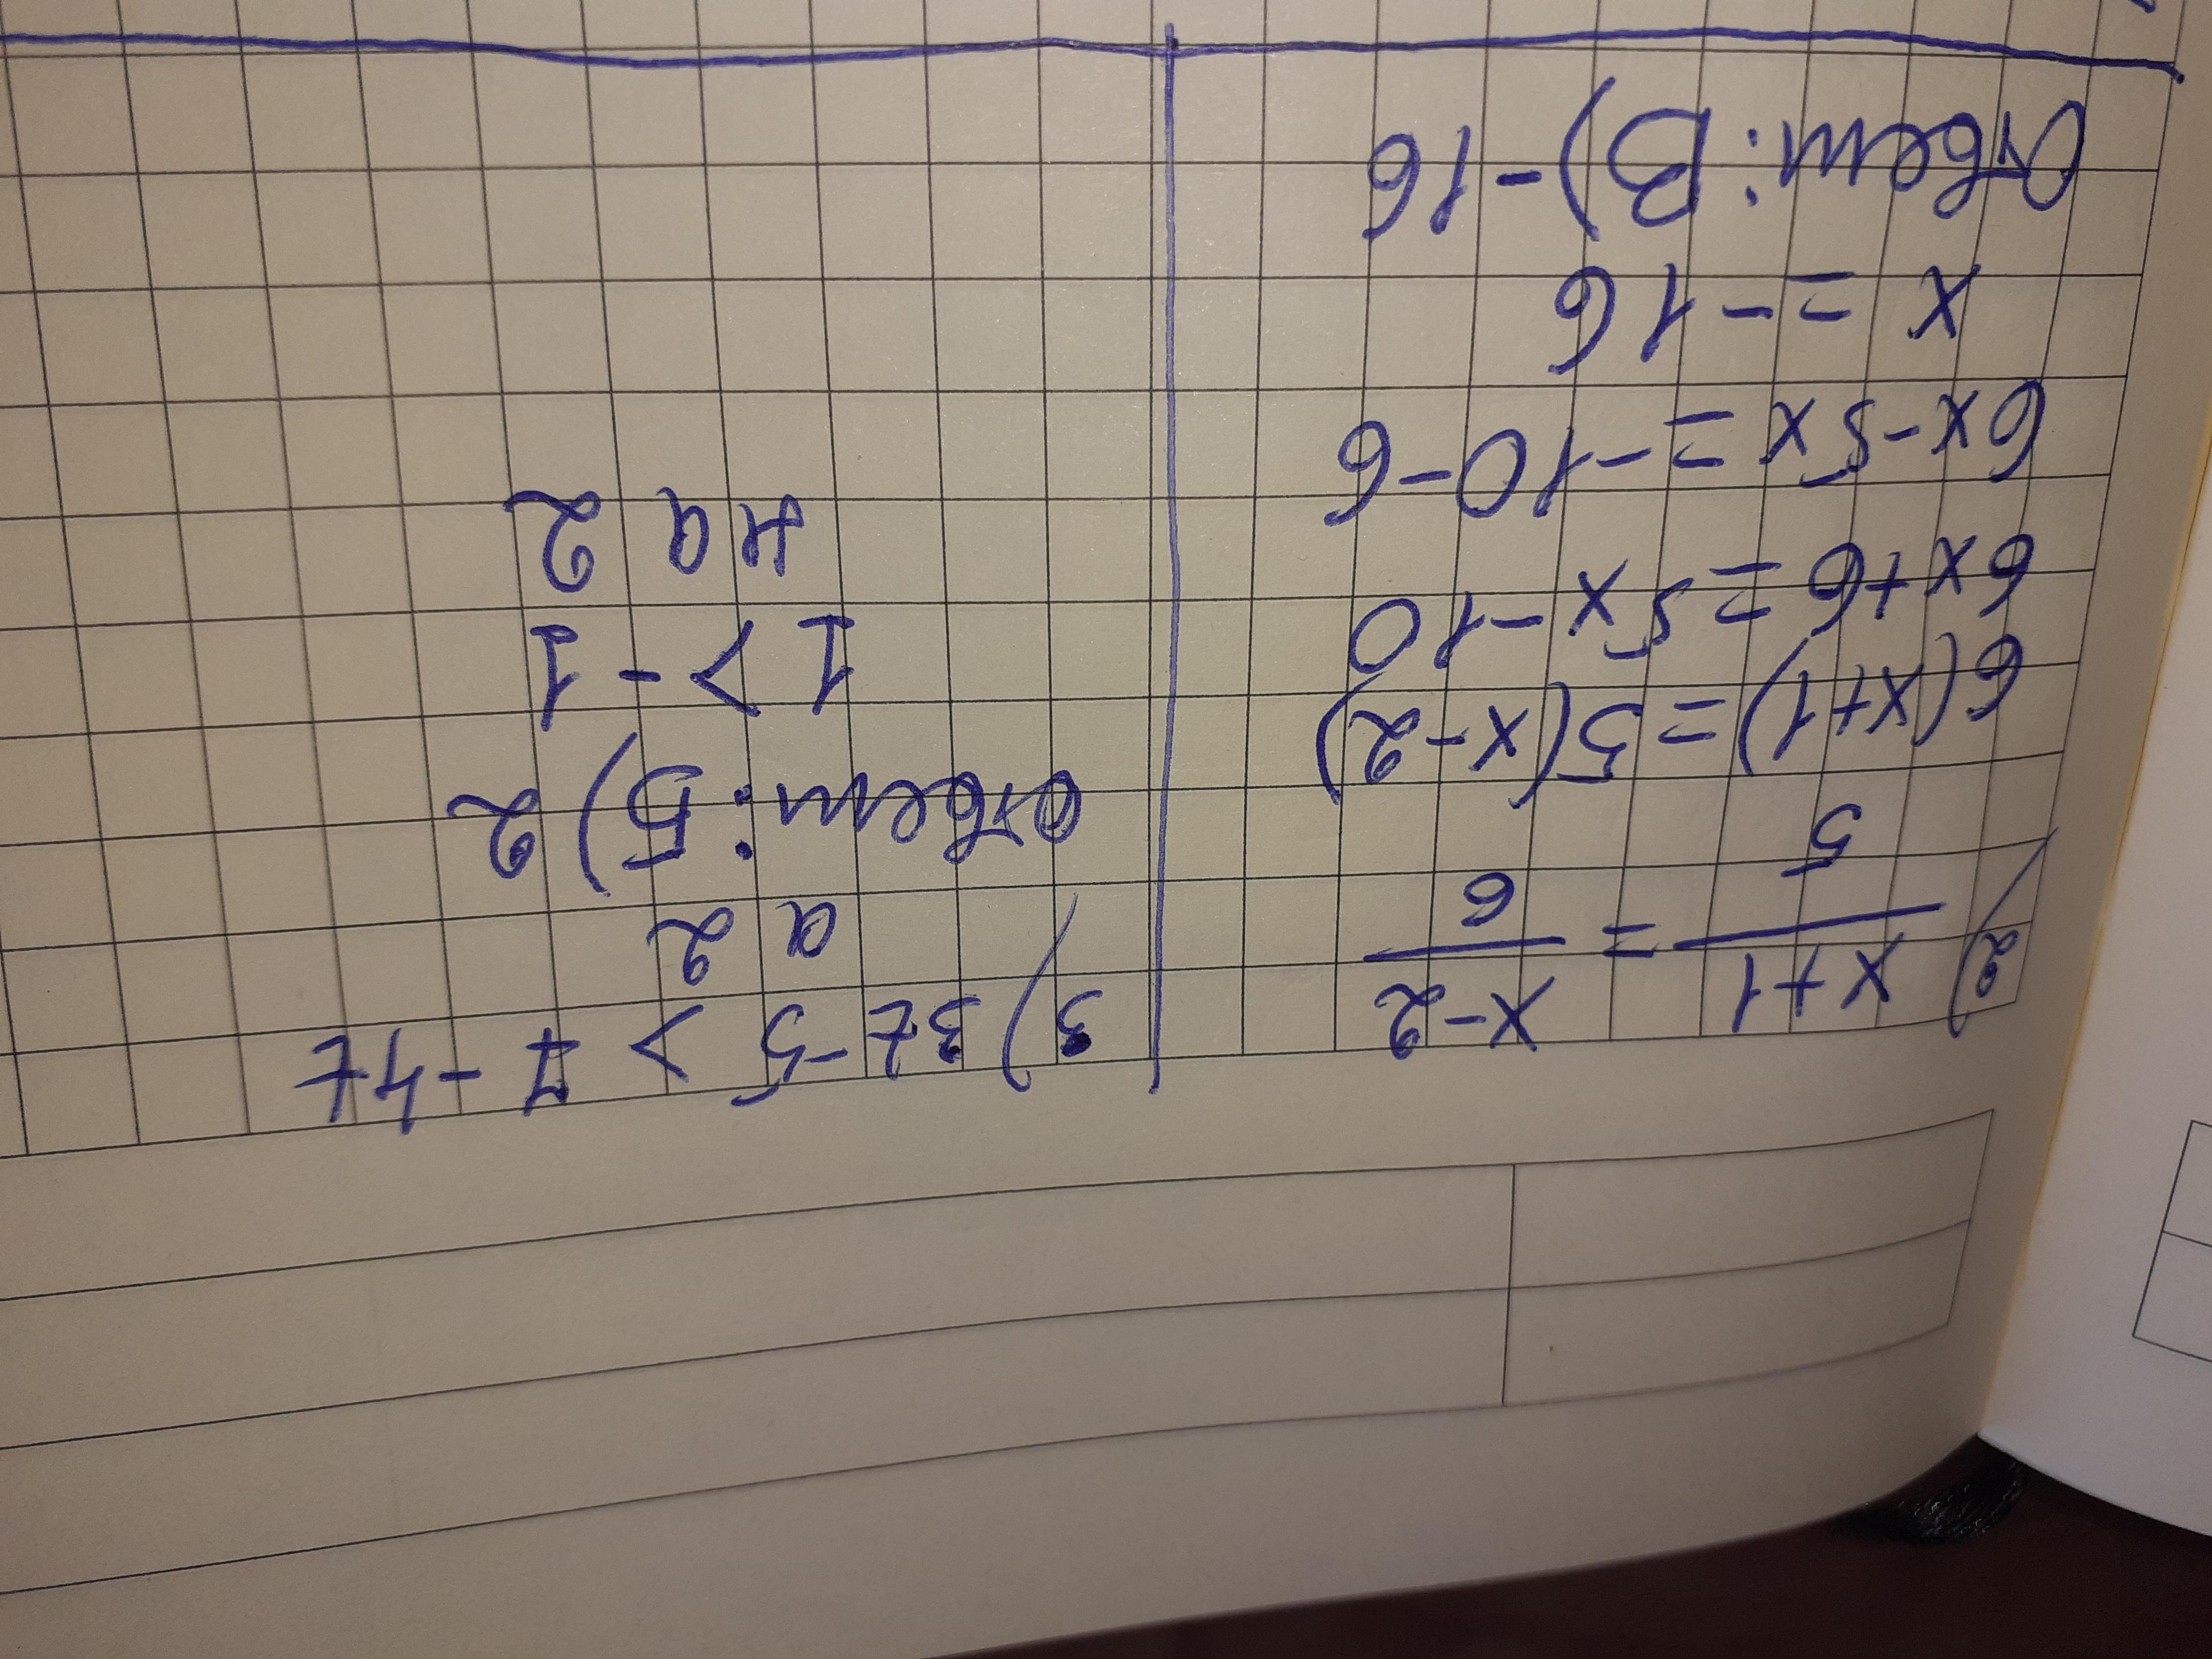 2) x+1/5 = x-2/6
6(x+1)=5(x-2)
6x+6=5x-10
6x-5x=-10-6
x = -16
Ответ: В) -16
3) 3t-5 > 7-4t
а 2
ответ: Б) 2
1 > -1
на 2